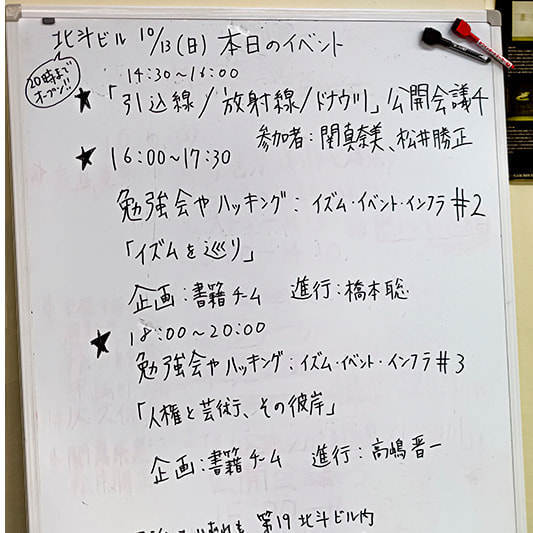 北斗ビル 10/13(日) 本日のイベント
20時まで
オープン!!
14:30〜16:00
★「引込線/放射線/ドナウ川」公開会議4
参加者:関真奈美、松井勝正
★ 16:00〜17:30
勉強会やハッキング:イズム・イベント・インフラ#2
「イズムを巡り」
企画:書籍チーム 進行:橋本聡
★ 18:00〜20:00
勉強会やハッキング:イズム・イベント・インフラ#3
「人権と芸術、その彼岸」
企画:書籍チーム 進行:高嶋晋一
第19北斗ビル内